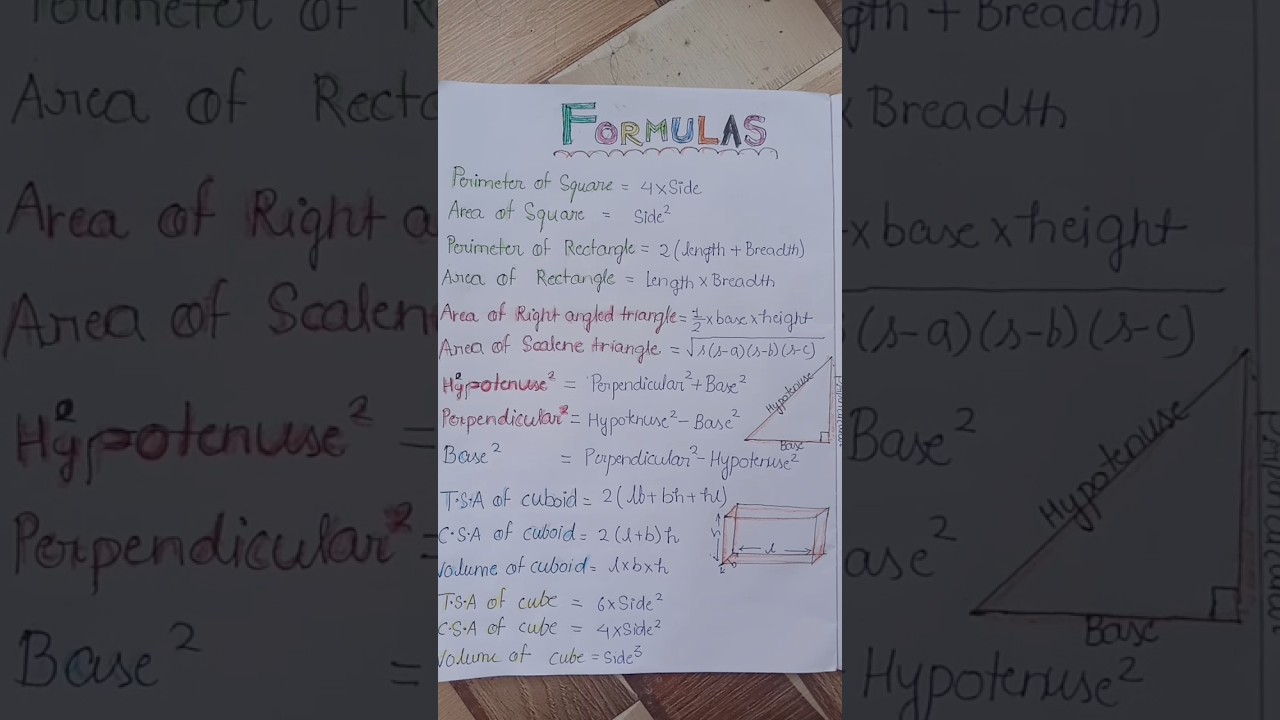 FORMULAS
Perimeter of Square = 4×Side
Area of Square = Side²
Perimeter of Rectangle = 2(length + Breadth)
Area of Rectangle = Length × Breadth
Area of Right angled triangle = 1/2 × base × height
Area of Scalene triangle = √s(s-a)(s-b)(s-c)
Hypotenuse² = Perpendicular² + Base²
Perpendicular² = Hypotenuse² - Base²
Base² = Perpendicular² - Hypotenuse²
Hypotenuse
Base
Perpendicular
T.S.A of cuboid = 2(lb + bh + hl)
C.S.A of cuboid = 2(l+b)h
Volume of cuboid = l×b×h
h
l
b
T.S.A of cube = 6×Side²
C.S.A of cube = 4×Side²
Volume of cube = Side³